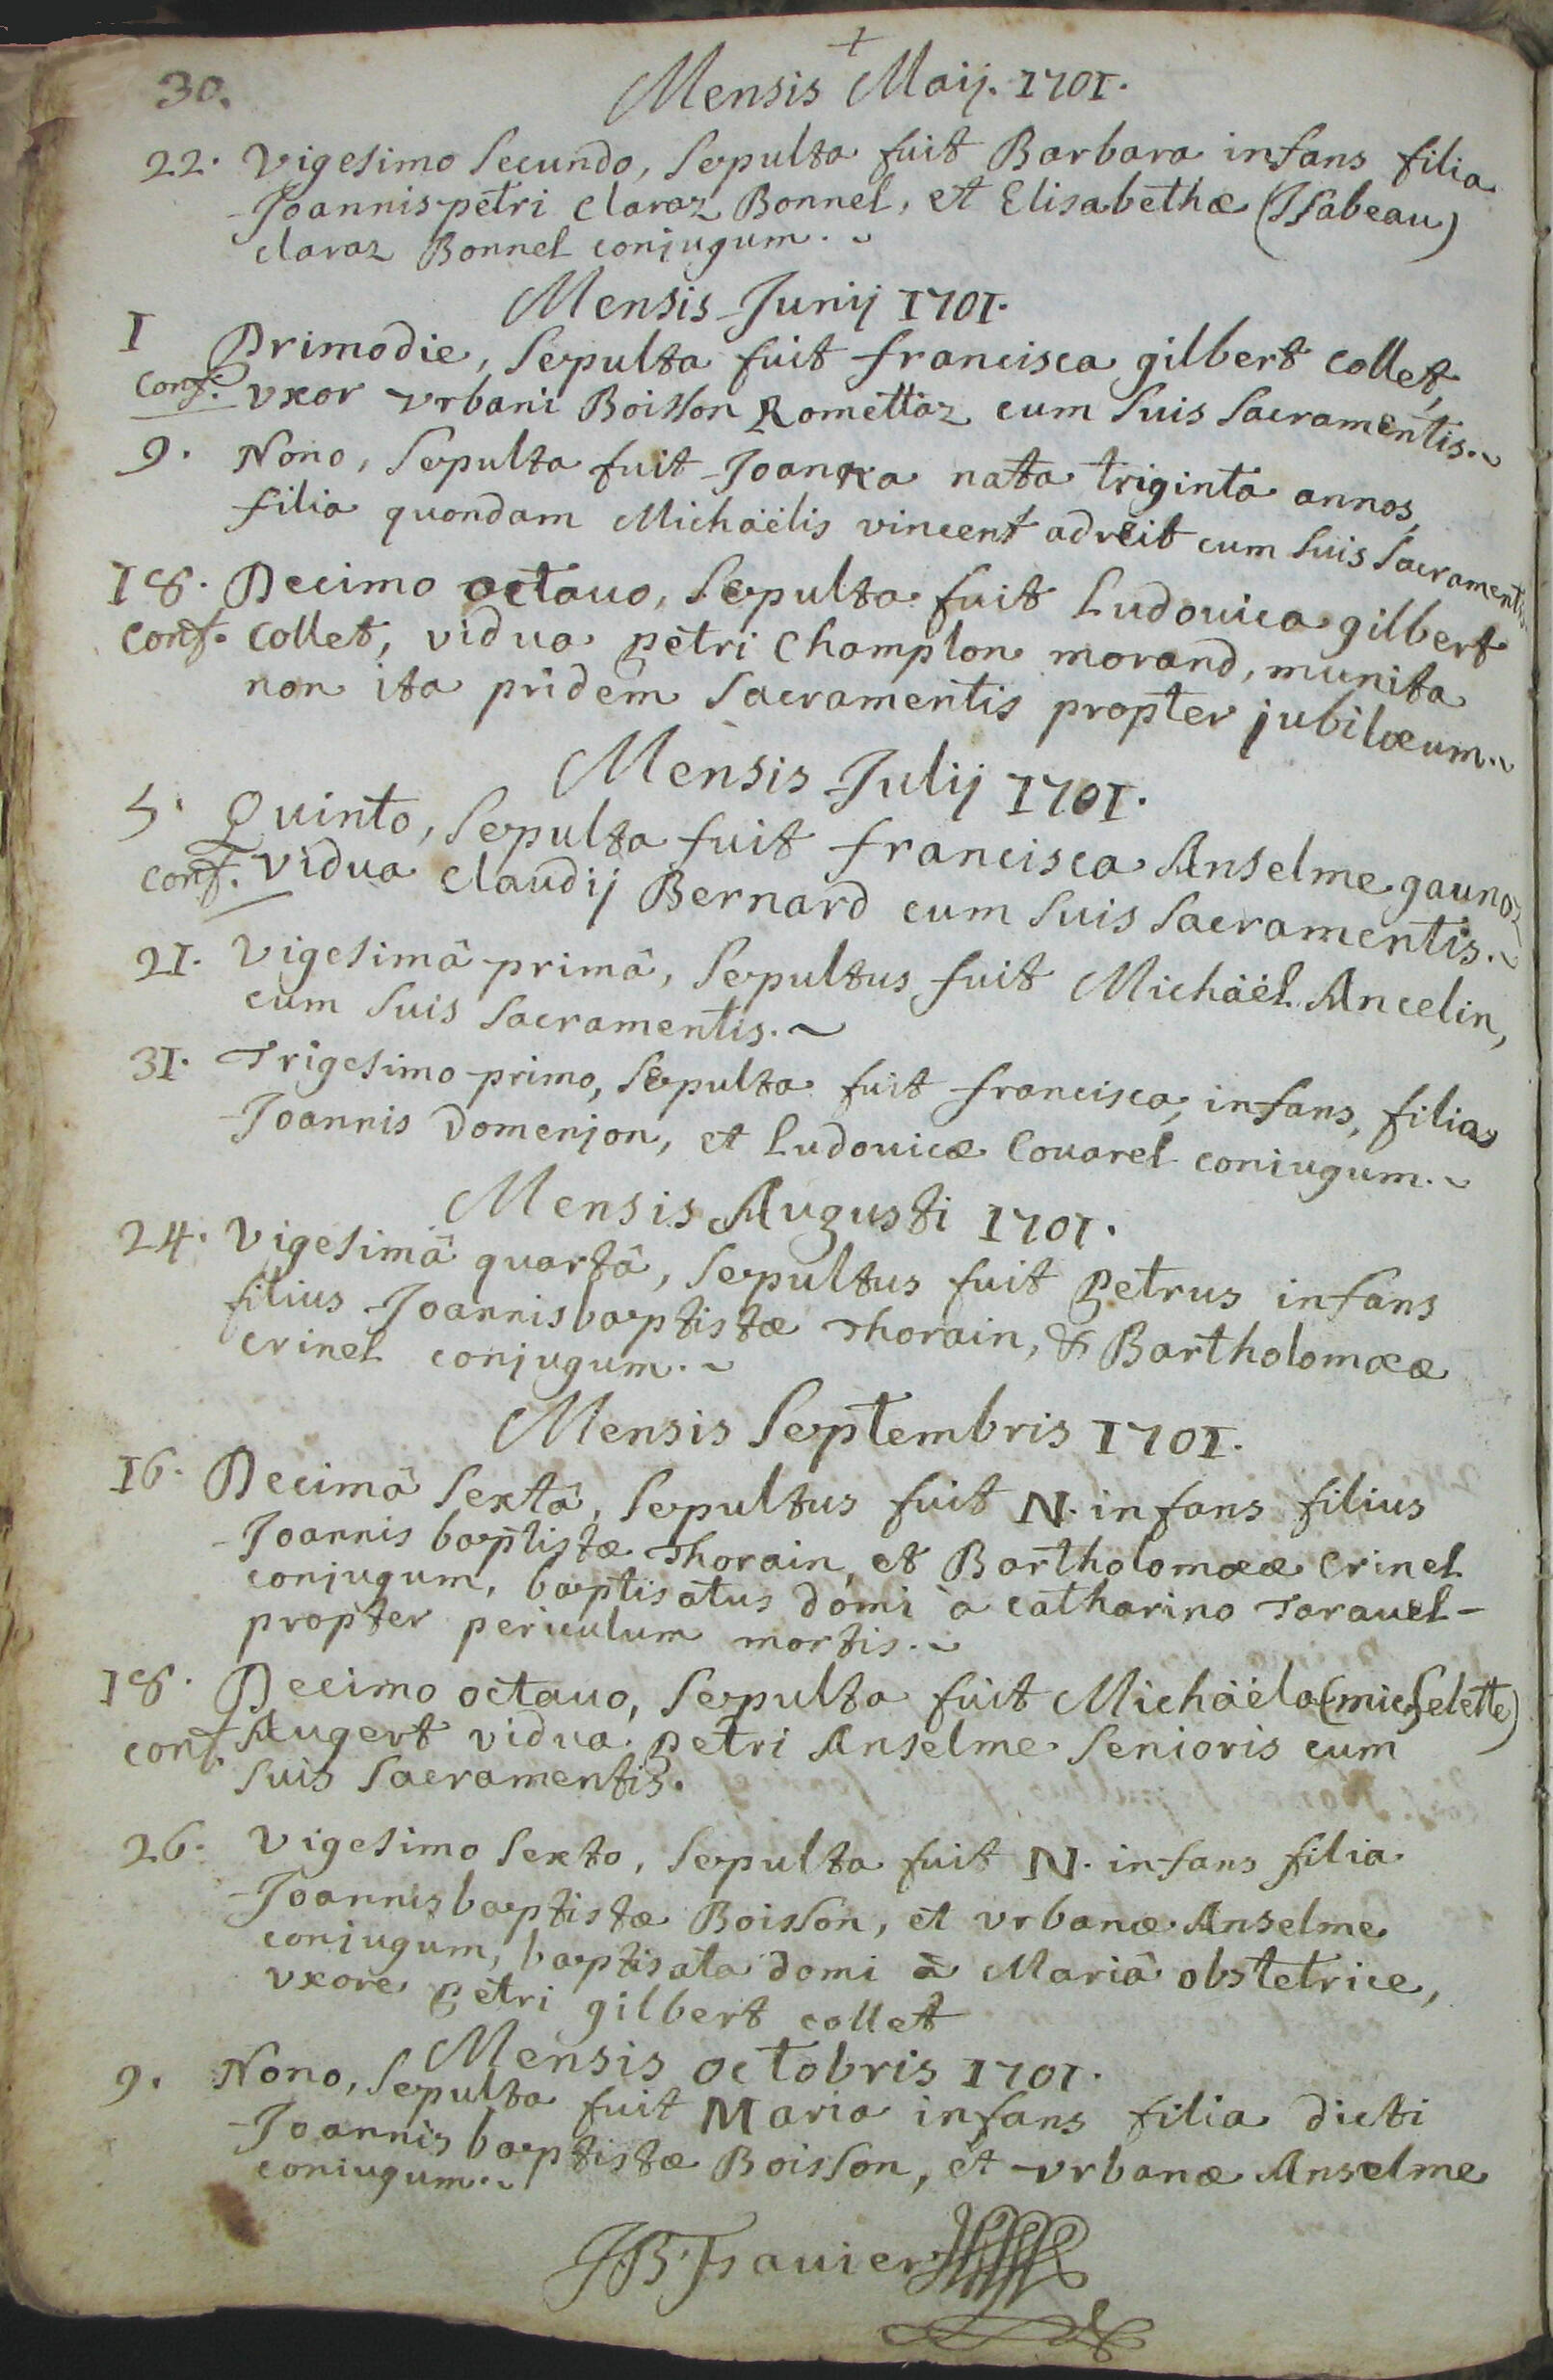 +
30. Mensis Maij. 1701.
22. vigesimo secundo, sepulta fuit Barbara infans filia
Joannis petri claraz Bonnel, et Elisabethæ (Isabeau)
claraz Bonnel conjugum.
Mensis Junij 1701.
1 Primo die, sepulta fuit francisca gilbert collet,
conf. vxor vrbani Boisson Romettaz cum suis sacramentis.
9. Nono, sepulta fuit Joanna nata triginta annos,
filia quondam Michaëlis vincent adreit cum suis sacramentis
18. Decimo octauo, sepulta fuit Ludouica gilbert
conf. collet, vidua petri Champlon morand, munita
non ita pridem sacramentis propter jubilæum.
Mensis Julij 1701.
5. Quinto, sepulta fuit francisca Anselme gaunoz
conf. vidua claudij Bernard cum suis sacramentis.
21. vigesimâ primâ, sepultus fuit Michaël Ancelin,
cum suis sacramentis.
31. Trigesimo primo, sepulta fuit francisca, infans, filia
Joannis Domenjon, et Ludouicæ Couarel coniugum.
Mensis Augusti 1701.
24. vigesimâ quartâ, sepultus fuit Petrus infans
filius Joannis baptistæ Thorain, & Bartholomææ
crinel conjugum.
Mensis Septembris 1701.
16. Decimâ sextâ, sepultus fuit N. infans filius
Joannis baptistæ Thorain, et Bartholomææ crinel
conjugum, baptisatus domi a catharina Tarauel
propter periculum mortis.
18. Decimo octauo, sepulta fuit Michaëla (michelette)
conf. Augert vidua petri Anselme senioris cum
suis sacramentis.
26. vigesimo sexto, sepulta fuit N. infans filia
Joannis baptistæ Boisson, et vrbanæ Anselme
conjugum, baptisata domi à Mariâ obstetrice,
vxore petri gilbert collet
Mensis octobris 1701.
9. Nono, sepulta fuit Maria infans filia dicti
Joannis baptistæ Boisson, et vrbanæ Anselme
coniugum.